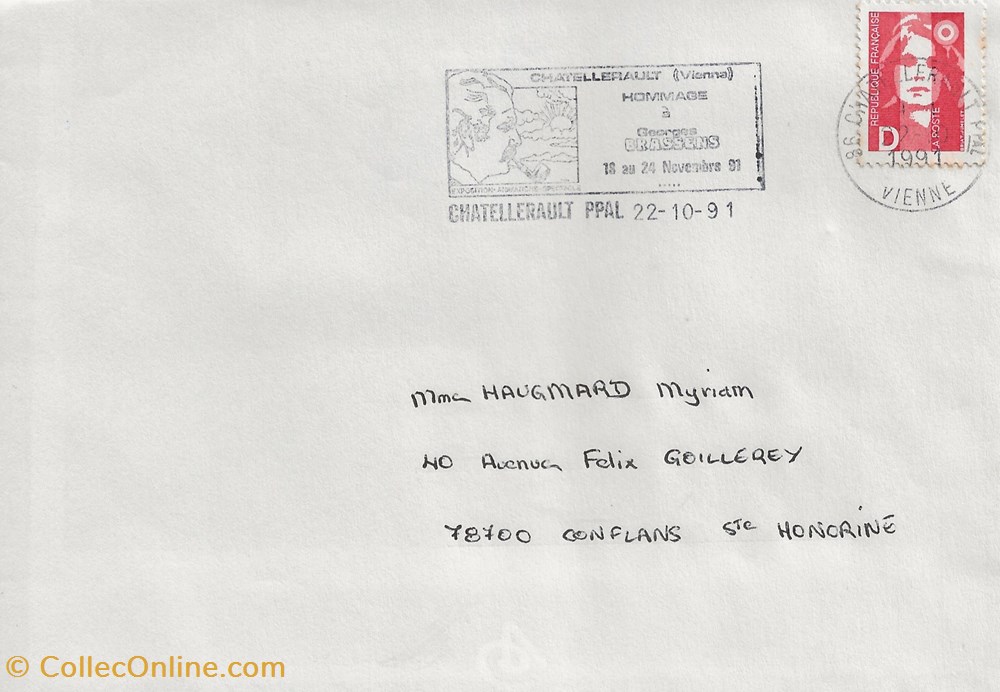 CHATELLERAULT (Vienne)
HOMMAGE
à
Georges
BRASSENS
18 au 24 Novembre 91
.....
EXPOSITION-ANIMATIONS-SPECTACLE
CHATELLERAULT PPAL 22-10-91
REPUBLIQUE FRANÇAISE
D
LA POSTE
86 CHATELLERAULT PPAL
1991
VIENNE
Mme HAUGMARD Myriam
40 Avenue Felix GOILLEREY
78700 CONFLANS Ste HONORINE
© CollecOnline.com